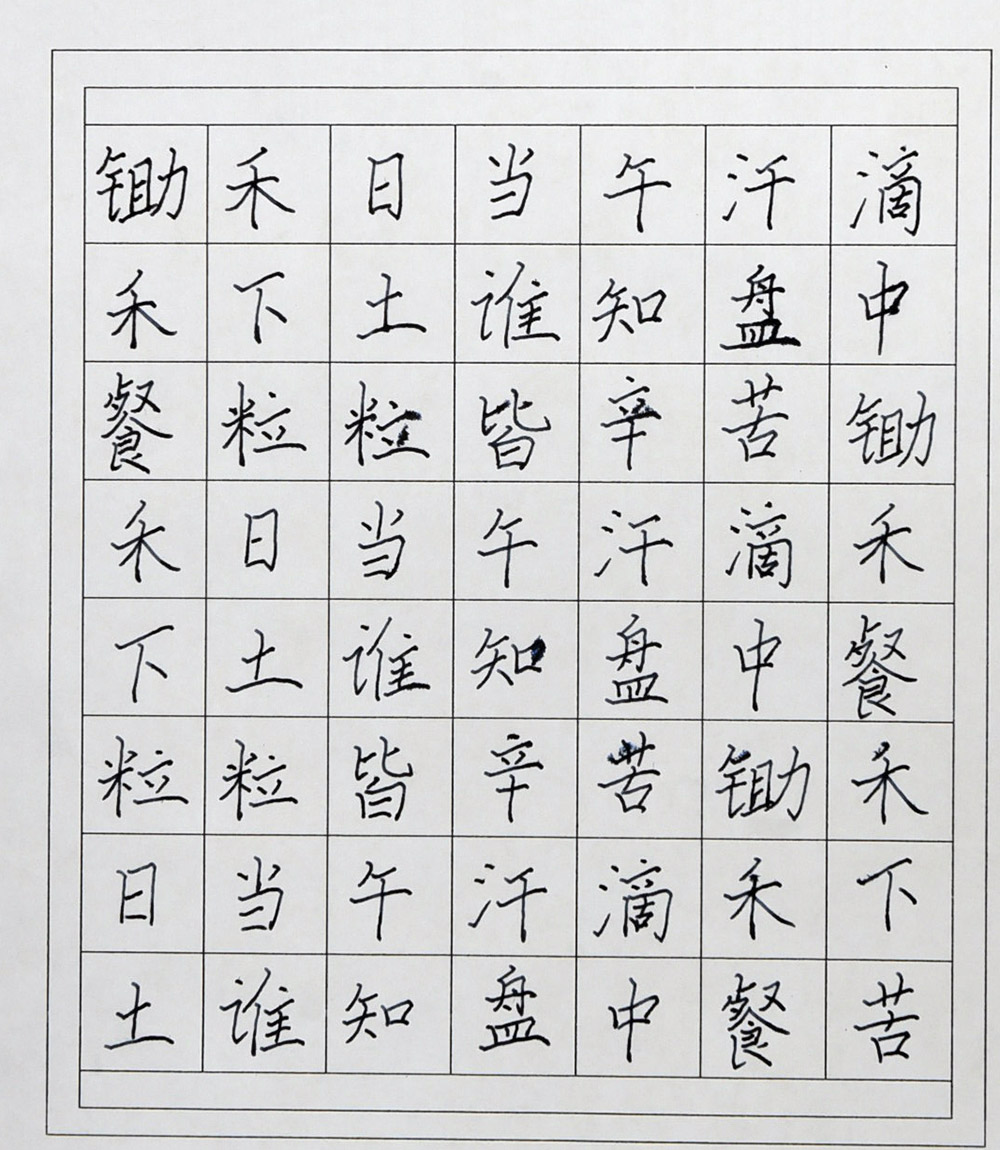 锄禾日当午汗滴
禾下土谁知盘中
餐粒粒皆辛苦锄
禾日当午汗滴禾
下土谁知盘中餐
粒粒皆辛苦锄禾
日当午汗滴禾下
土谁知盘中餐苦